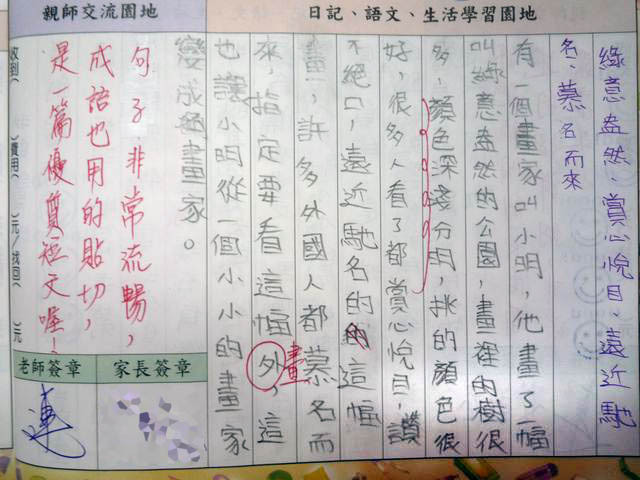 日記、語文、生活學習園地
綠意盎然、賞心悅目、遠近馳
名、慕名而來
有一個畫家叫小明，他畫了一幅
叫綠意盎然的公園，畫裡的樹很
多，顏色深淺分明，挑的顏色很
好，很多人看了都賞心悅目，讚
不絕口，遠近馳名的這幅
畫，許多外國人都慕名而
來，指定要看這幅外，這
畫
也讓小明從一個小小的畫家
變成
畫家。
親師交流園地
句子非常流暢，
成語也用的貼切，
是一篇優質短文喔！
收到（ ）費用（ ）元/找回（ ）元
家長簽章
老師簽章
連